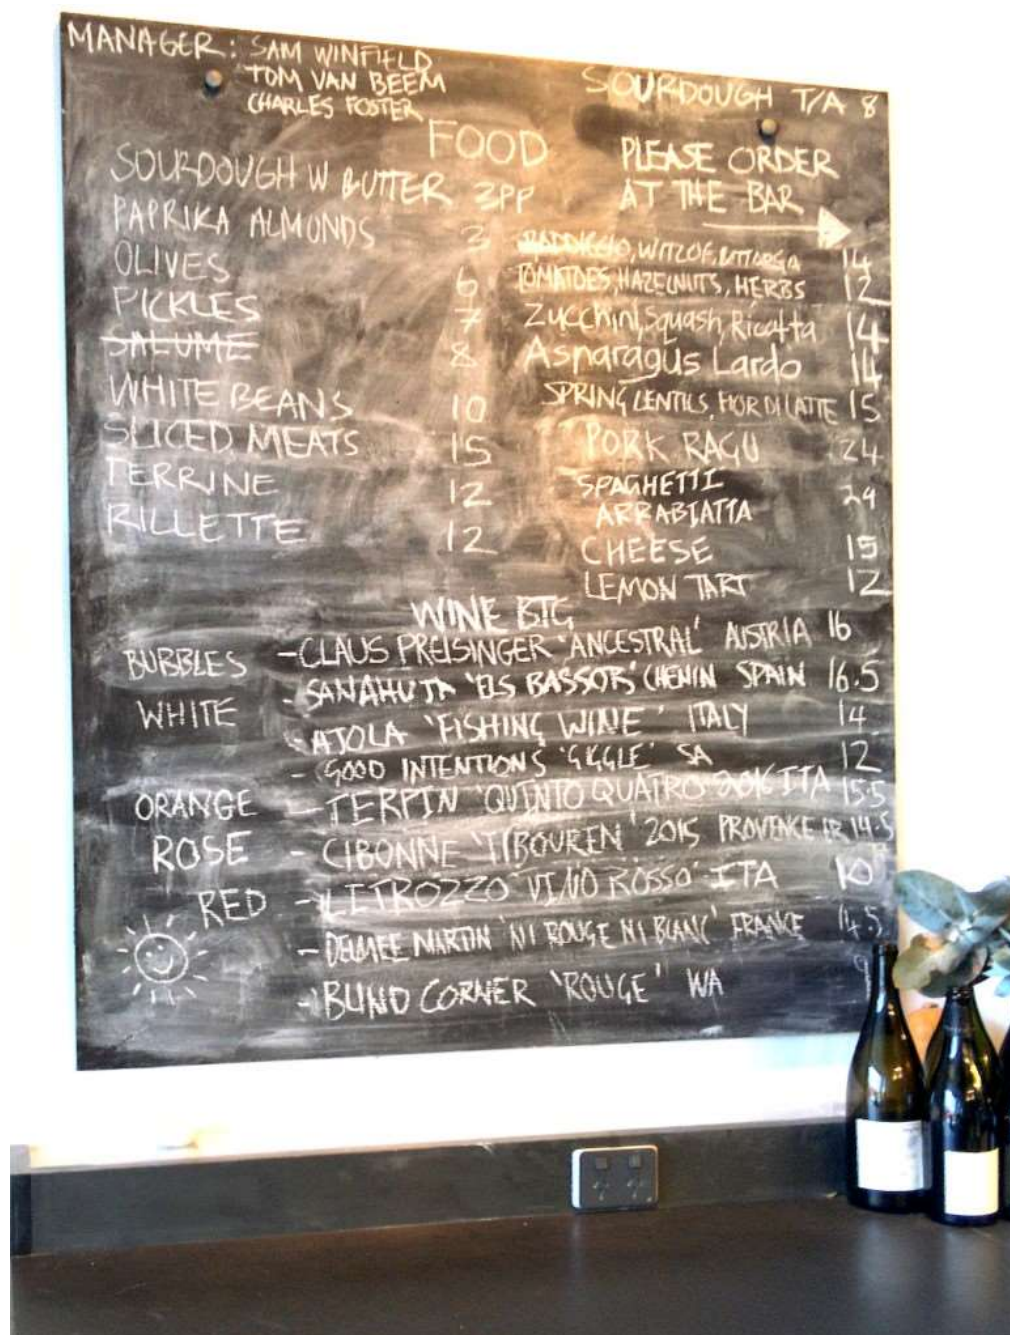 MANAGER: SAM WINFIELD
TOM VAN BEEM
CHARLES FOSTER
SOURDOUGH T/A 8
FOOD
PLEASE ORDER
AT THE BAR
SOURDOUGH W BUTTER 3PP
PAPRIKA ALMONDS 3
OLIVES 6
PICKLES 7
SALUME 8
WHITE BEANS 10
SLICED MEATS 15
TERRINE 12
RILLETTE 12
RADDICCIO, WITLOF, BOTTARGA 14
TOMATOES, HAZELNUTS, HERBS 12
Zucchini, Squash, Ricotta 14
Asparagus Lardo 14
SPRING LENTILS, FIOR DI LATTE 15
PORK RAGU 24
SPAGHETTI
ARRABIATTA 24
CHEESE 15
LEMON TART 12
WINE BTG
BUBBLES - CLAUS PREISINGER 'ANCESTRAL' AUSTRIA 16
WHITE - SANAHUJA 'ELS BASSOTS' CHENIN SPAIN 16.5
- AJOLA 'FISHING WINE' ITALY 14
- GOOD INTENTIONS 'GIGGLE' SA 12
ORANGE - TERPIN 'QUINTO QUATRO' 2016 ITA 15.5
ROSE - CIBONNE 'TIBOUREN' 2015 PROVENCE FR 14.5
RED - LITROZZO 'VINO ROSSO' ITA 10
- MARTIN 'NI ROUGE NI BLANC' FRANCE 14.5
- BLIND CORNER 'ROUGE' WA 9